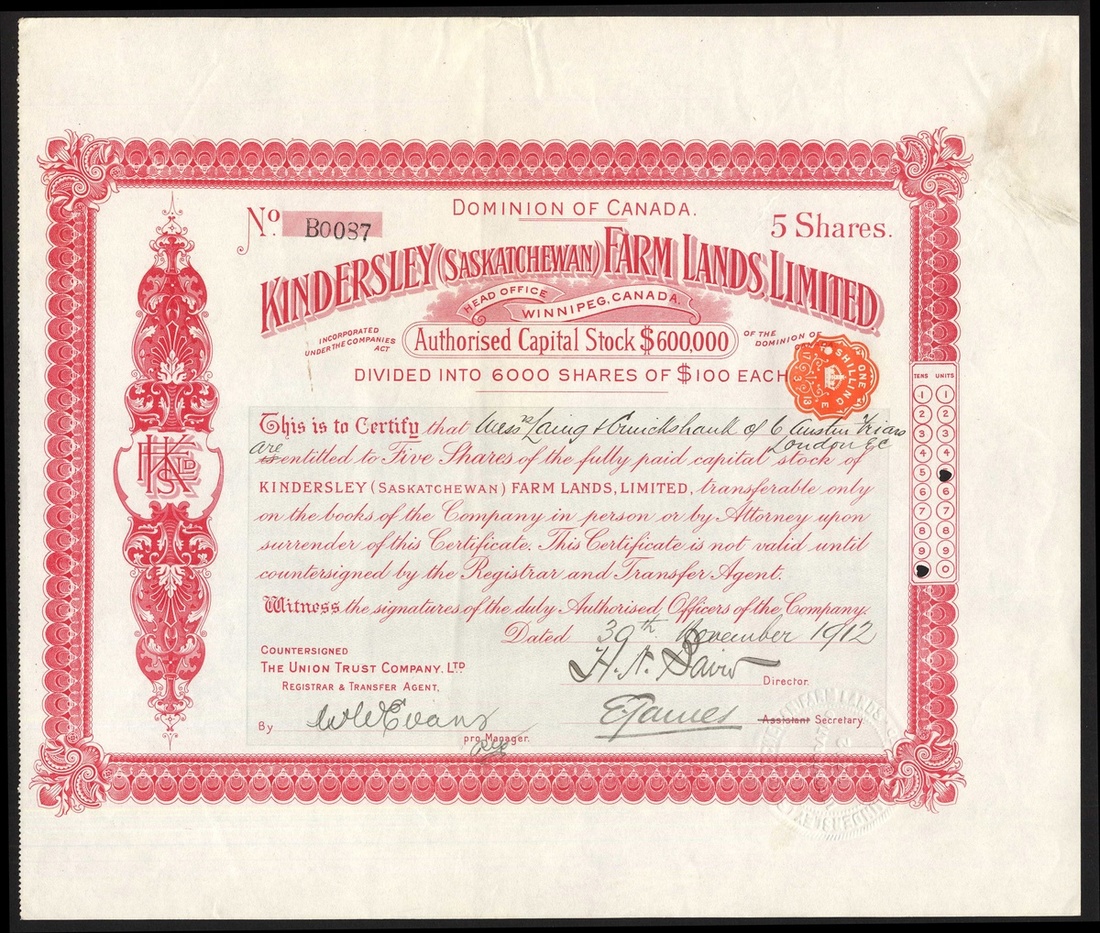 DOMINION OF CANADA.
No. B0087
5 Shares.
KINDERSLEY (SASKATCHEWAN) FARM LANDS, LIMITED.
HEAD OFFICE
WINNIPEG, CANADA.
INCORPORATED UNDER THE COMPANIES ACT
Authorised Capital Stock $600,000
OF THE DOMINION OF
DIVIDED INTO 6000 SHARES OF $100 EACH
ONE SHILLING
17 3 13
TENS UNITS
1 1
2 2
3 3
4 4
5
6 6
7 7
8 8
9 9
0
This is to Certify that Messrs Laing & Cruickshank of 6 Austin Friars
London EC
are
is entitled to Five Shares of the fully paid capital stock of
KINDERSLEY (SASKATCHEWAN) FARM LANDS, LIMITED, transferable only
on the books of the Company in person or by Attorney upon
surrender of this Certificate. This Certificate is not valid until
countersigned by the Registrar and Transfer Agent.
Witness the signatures of the duly Authorised Officers of the Company.
Dated 30th November 1912
COUNTERSIGNED
THE UNION TRUST COMPANY, LTD
REGISTRAR & TRANSFER AGENT,
Director.
By Evans
pro Manager.
E. James
Assistant Secretary
FARM LANDS